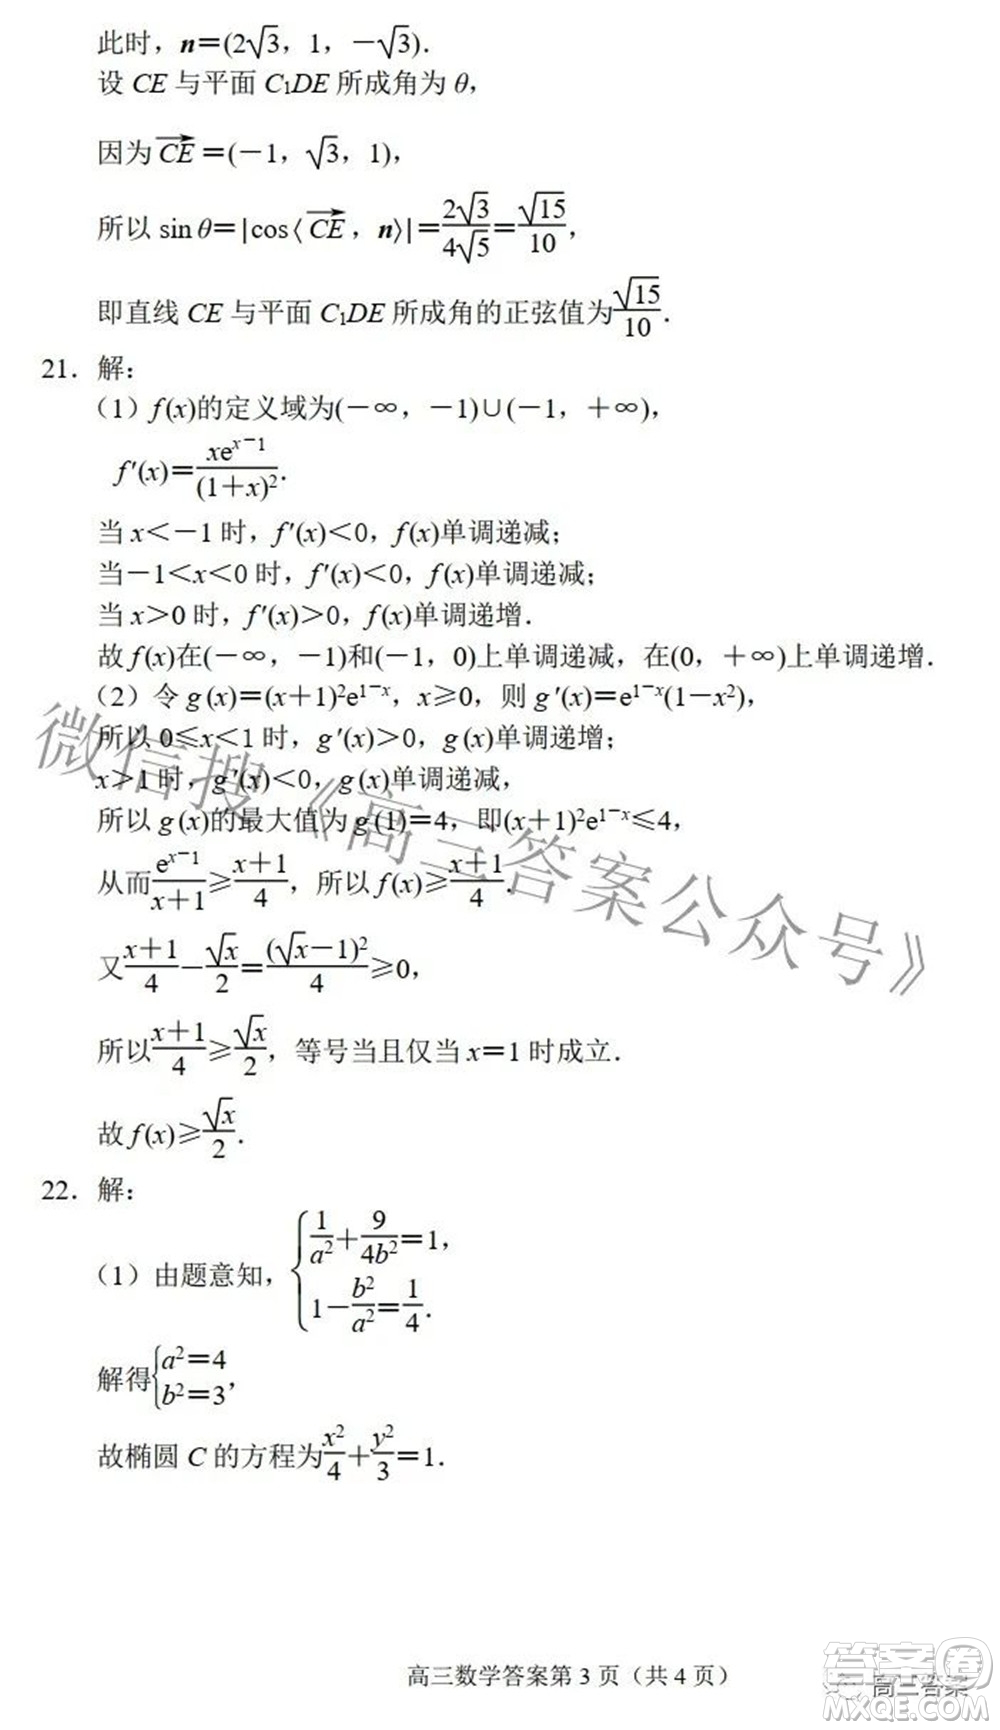 此时，n＝(2√3，1，－√3)．
设 CE 与平面 C₁DE 所成角为 θ，
因为CE→＝(－1，√3，1)，
所以 sin θ＝|cos⟨CE→，n⟩|＝2√3/4√5＝√15/10，
即直线 CE 与平面 C₁DE 所成角的正弦值为√15/10．
21．解：
（1）f(x)的定义域为(－∞，－1)∪(－1，＋∞)，
f′(x)＝xe^(x－1)/(1＋x)²．
当 x＜－1 时，f′(x)＜0，f(x)单调递减；
当－1＜x＜0 时，f′(x)＜0，f(x)单调递减；
当 x＞0 时，f′(x)＞0，f(x)单调递增．
故 f(x)在(－∞，－1)和(－1，0)上单调递减，在(0，＋∞)上单调递增．
（2）令 g(x)＝(x＋1)²e^(1－x)，x≥0，则 g′(x)＝e^(1－x)(1－x²)，
所以 0≤x＜1 时，g′(x)＞0，g(x)单调递增；
x＞1 时，g′(x)＜0，g(x)单调递减，
所以 g(x)的最大值为 g(1)＝4，即(x＋1)²e^(1－x)≤4，
从而e^(x－1)/(x＋1)≥(x＋1)/4，所以 f(x)≥(x＋1)/4．
又(x＋1)/4－√x/2＝(√x－1)²/4≥0，
所以(x＋1)/4≥√x/2，等号当且仅当 x＝1 时成立．
故 f(x)≥√x/2．
22．解：
（1）由题意知，{1/a²＋9/4b²＝1，
1－b²/a²＝1/4．
解得{a²＝4
b²＝3，
故椭圆 C 的方程为x²/4＋y²/3＝1．
高三数学答案第 3 页（共 4 页）
微信搜《高三答案公众号》
答案圈
高三答案
MXQE.COM